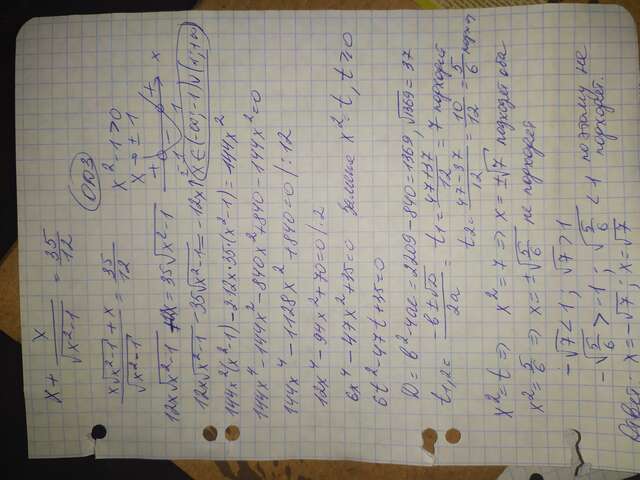 x + x/√(x²-1) = 35/12
ОДЗ
(x√(x²-1) + x)/√(x²-1) = 35/12
x²-1>0
x → ± 1
12x√(x²-1) + 12x = 35√(x²-1)
+ -1 - 1 + x
x∈(-∞;-1)∪(1;+∞)
12x√(x²-1) - 35√(x²-1) = -12x
144x²(x²-1) - 2·12x·35·(x²-1) = 144x²
144x⁴ - 144x² - 840x² + 840 - 144x² = 0
144x⁴ - 1128x² + 840 = 0 /:12
12x⁴ - 94x² + 70 = 0 /:2
6x⁴ - 47x² + 35 = 0 Замена x² = t, t ≥ 0
6t² - 47t + 35 = 0
D = b² - 4ac = 2209 - 840 = 1369, √1369 = 37
t₁,₂ = (b ± √D)/2a = t₁ = (47+37)/12 = 7 подходит
t₂ = (47-37)/12 = 10/12 = 5/6 подход
x² = t ⇒ x² = 7 ⇒ x = ±√7 подходят оба
x² = 5/6 ⇒ x = ±√(5/6) не подходят
-√7 < 1; √7 > 1
-√(5/6) > -1; √(5/6) < 1 поэтому не подходят.
Ответ: x = -√7; x = √7